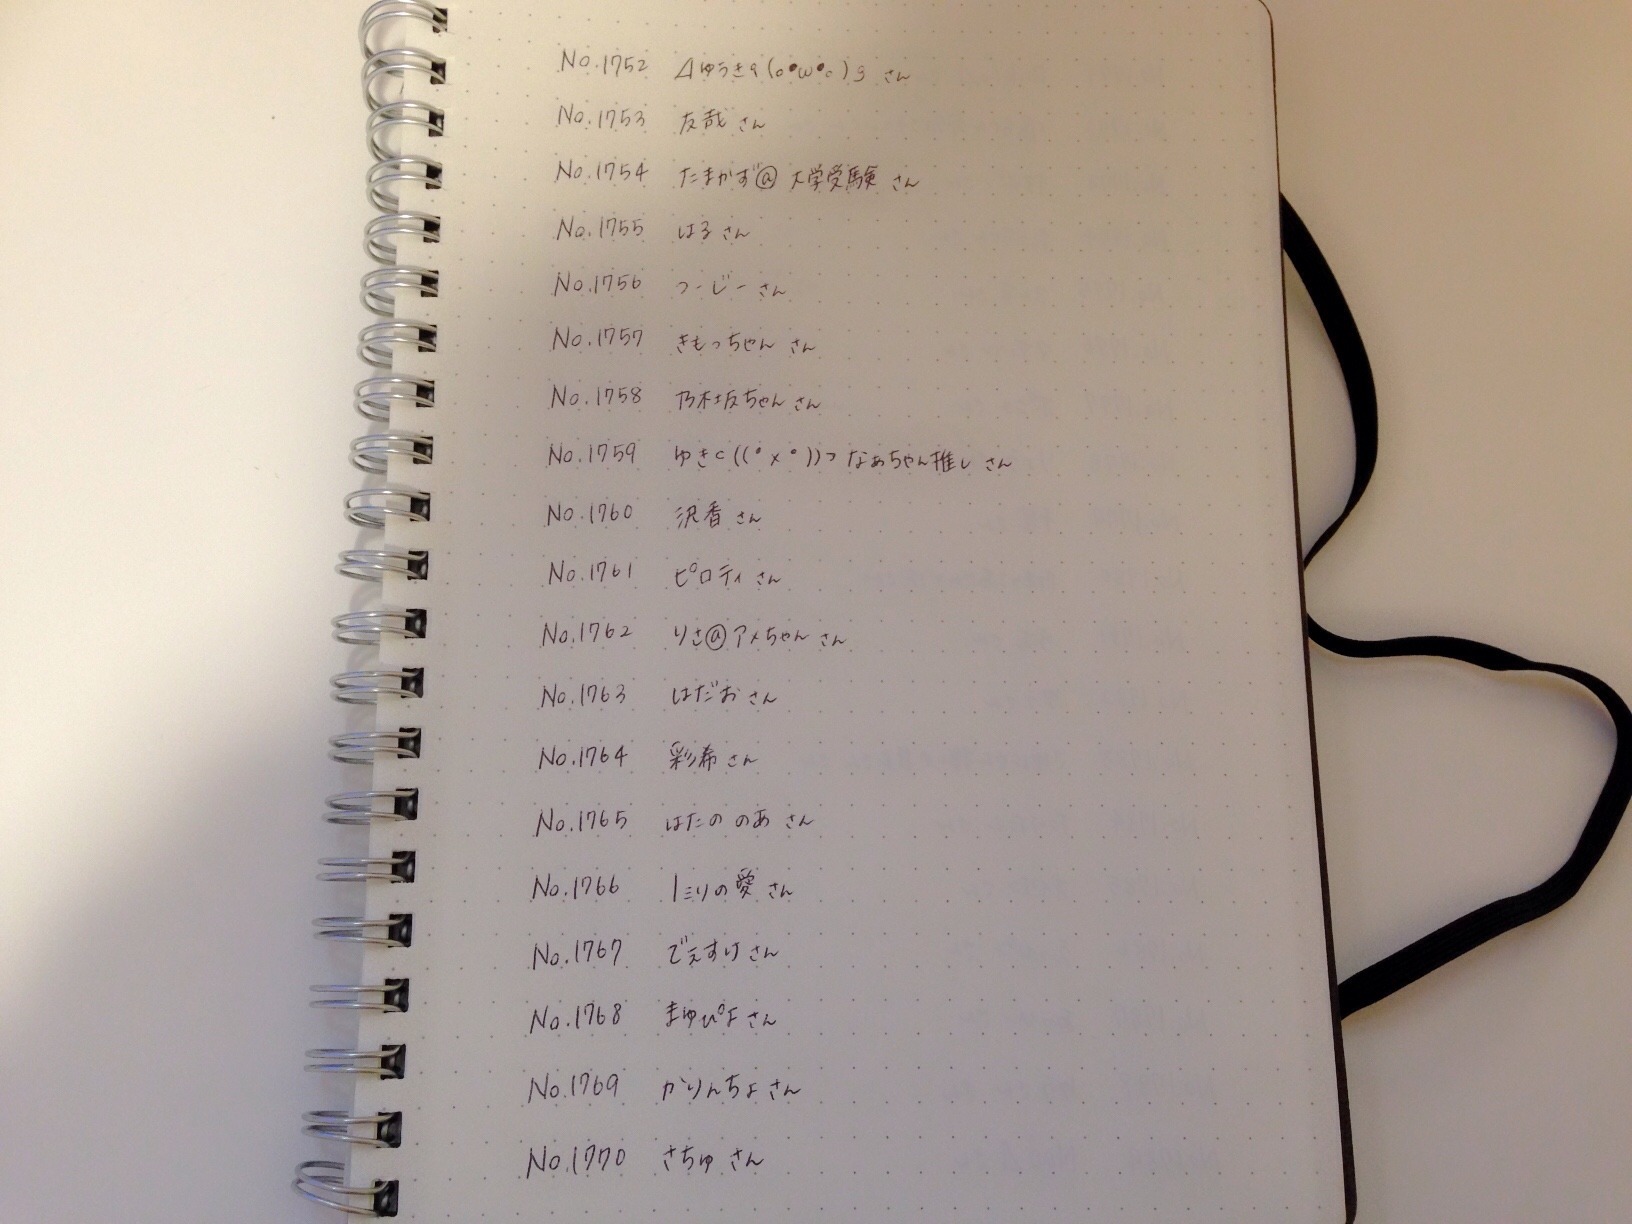 No.1752 ⊿ゆうきq(o•ω•o)g さん
No.1753 友哉さん
No.1754 たまかず@大学受験 さん
No.1755 はるさん
No.1756 つーじーさん
No.1757 きもっちゃん さん
No.1758 乃木坂ちゃんさん
No.1759 ゆき⊂((・x・))⊃なぁちゃん推し さん
No.1760 沢香さん
No.1761 ピロティさん
No.1762 りさ@アメちゃん さん
No.1763 はだおさん
No.1764 彩希さん
No.1765 はたの のあ さん
No.1766 1ミリの愛さん
No.1767 でえすけさん
No.1768 まゆぴよさん
No.1769 かりんちょさん
No.1770 さちゅ さん